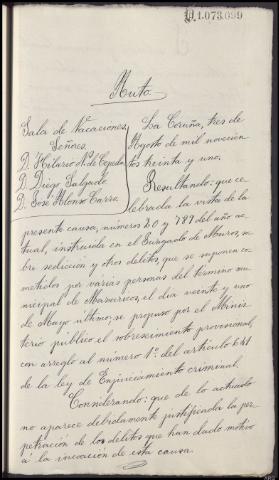 1.073.099
Auto.
Sala de Vacaciones
Señores.
D. Hilario N. de Cepeda
D. Diego Salgado
D. José Alonso Carro
La Coruña, tres de
Agosto de mil novecien
tos treinta y uno.
Resultando: que ce
lebrada la vista de la
presente causa, números 20 y 787 del año ac
tual, instruida en el Juzgado de Muros, so
bre sedición y otros delitos, que se suponen co
metidos por varias personas del termino mu
nicipal de Mazaricos, el dia veinte y uno
de Mayo último, se propuso por el Minis
terio público el sobreseimiento provisional,
con arreglo al número 1º del articulo 641
de la ley de Enjuiciamiento criminal.
Considerando: que de lo actuado
no aparece debidamente justificada la per
petración de los delitos que han dado motivo
á la incoación de esta causa.